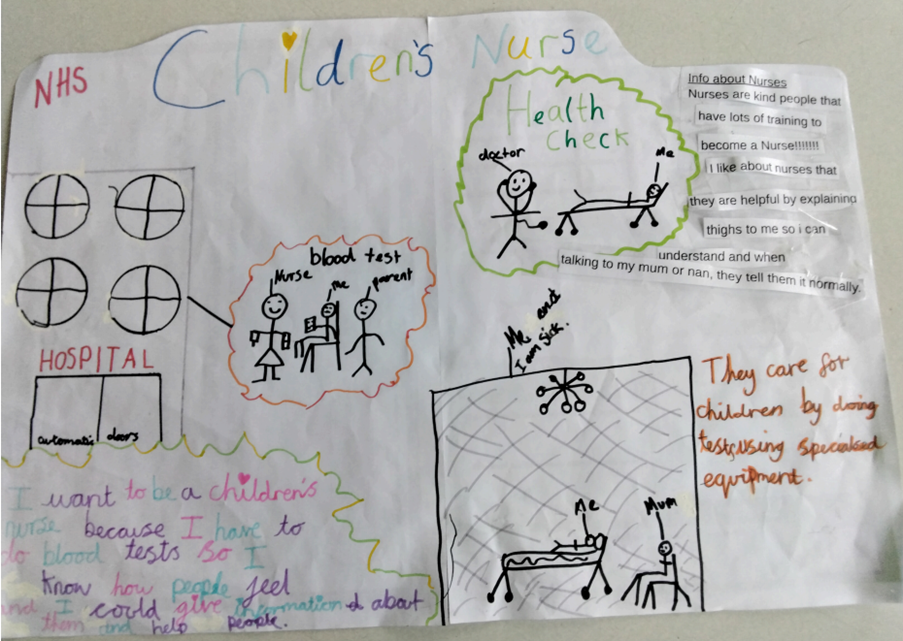 Children's Nurse
NHS
Health
Check
doctor
Me
Info about Nurses
Nurses are kind people that
have lots of training to
become a Nurse!!!!!!!
I like about nurses that
they are helpful by explaining
thighs to me so i can
understand and when
talking to my mum or nan, they tell them it normally.
blood test
Nurse
me
parent
HOSPITAL
automatic doors
Me and
I am sick.
They care for
children by doing
tests using specialised
equipment.
Me
Mum
I want to be a children's
nurse because I have to
do blood tests so I
know how people feel
and I could give information about
them and help people.